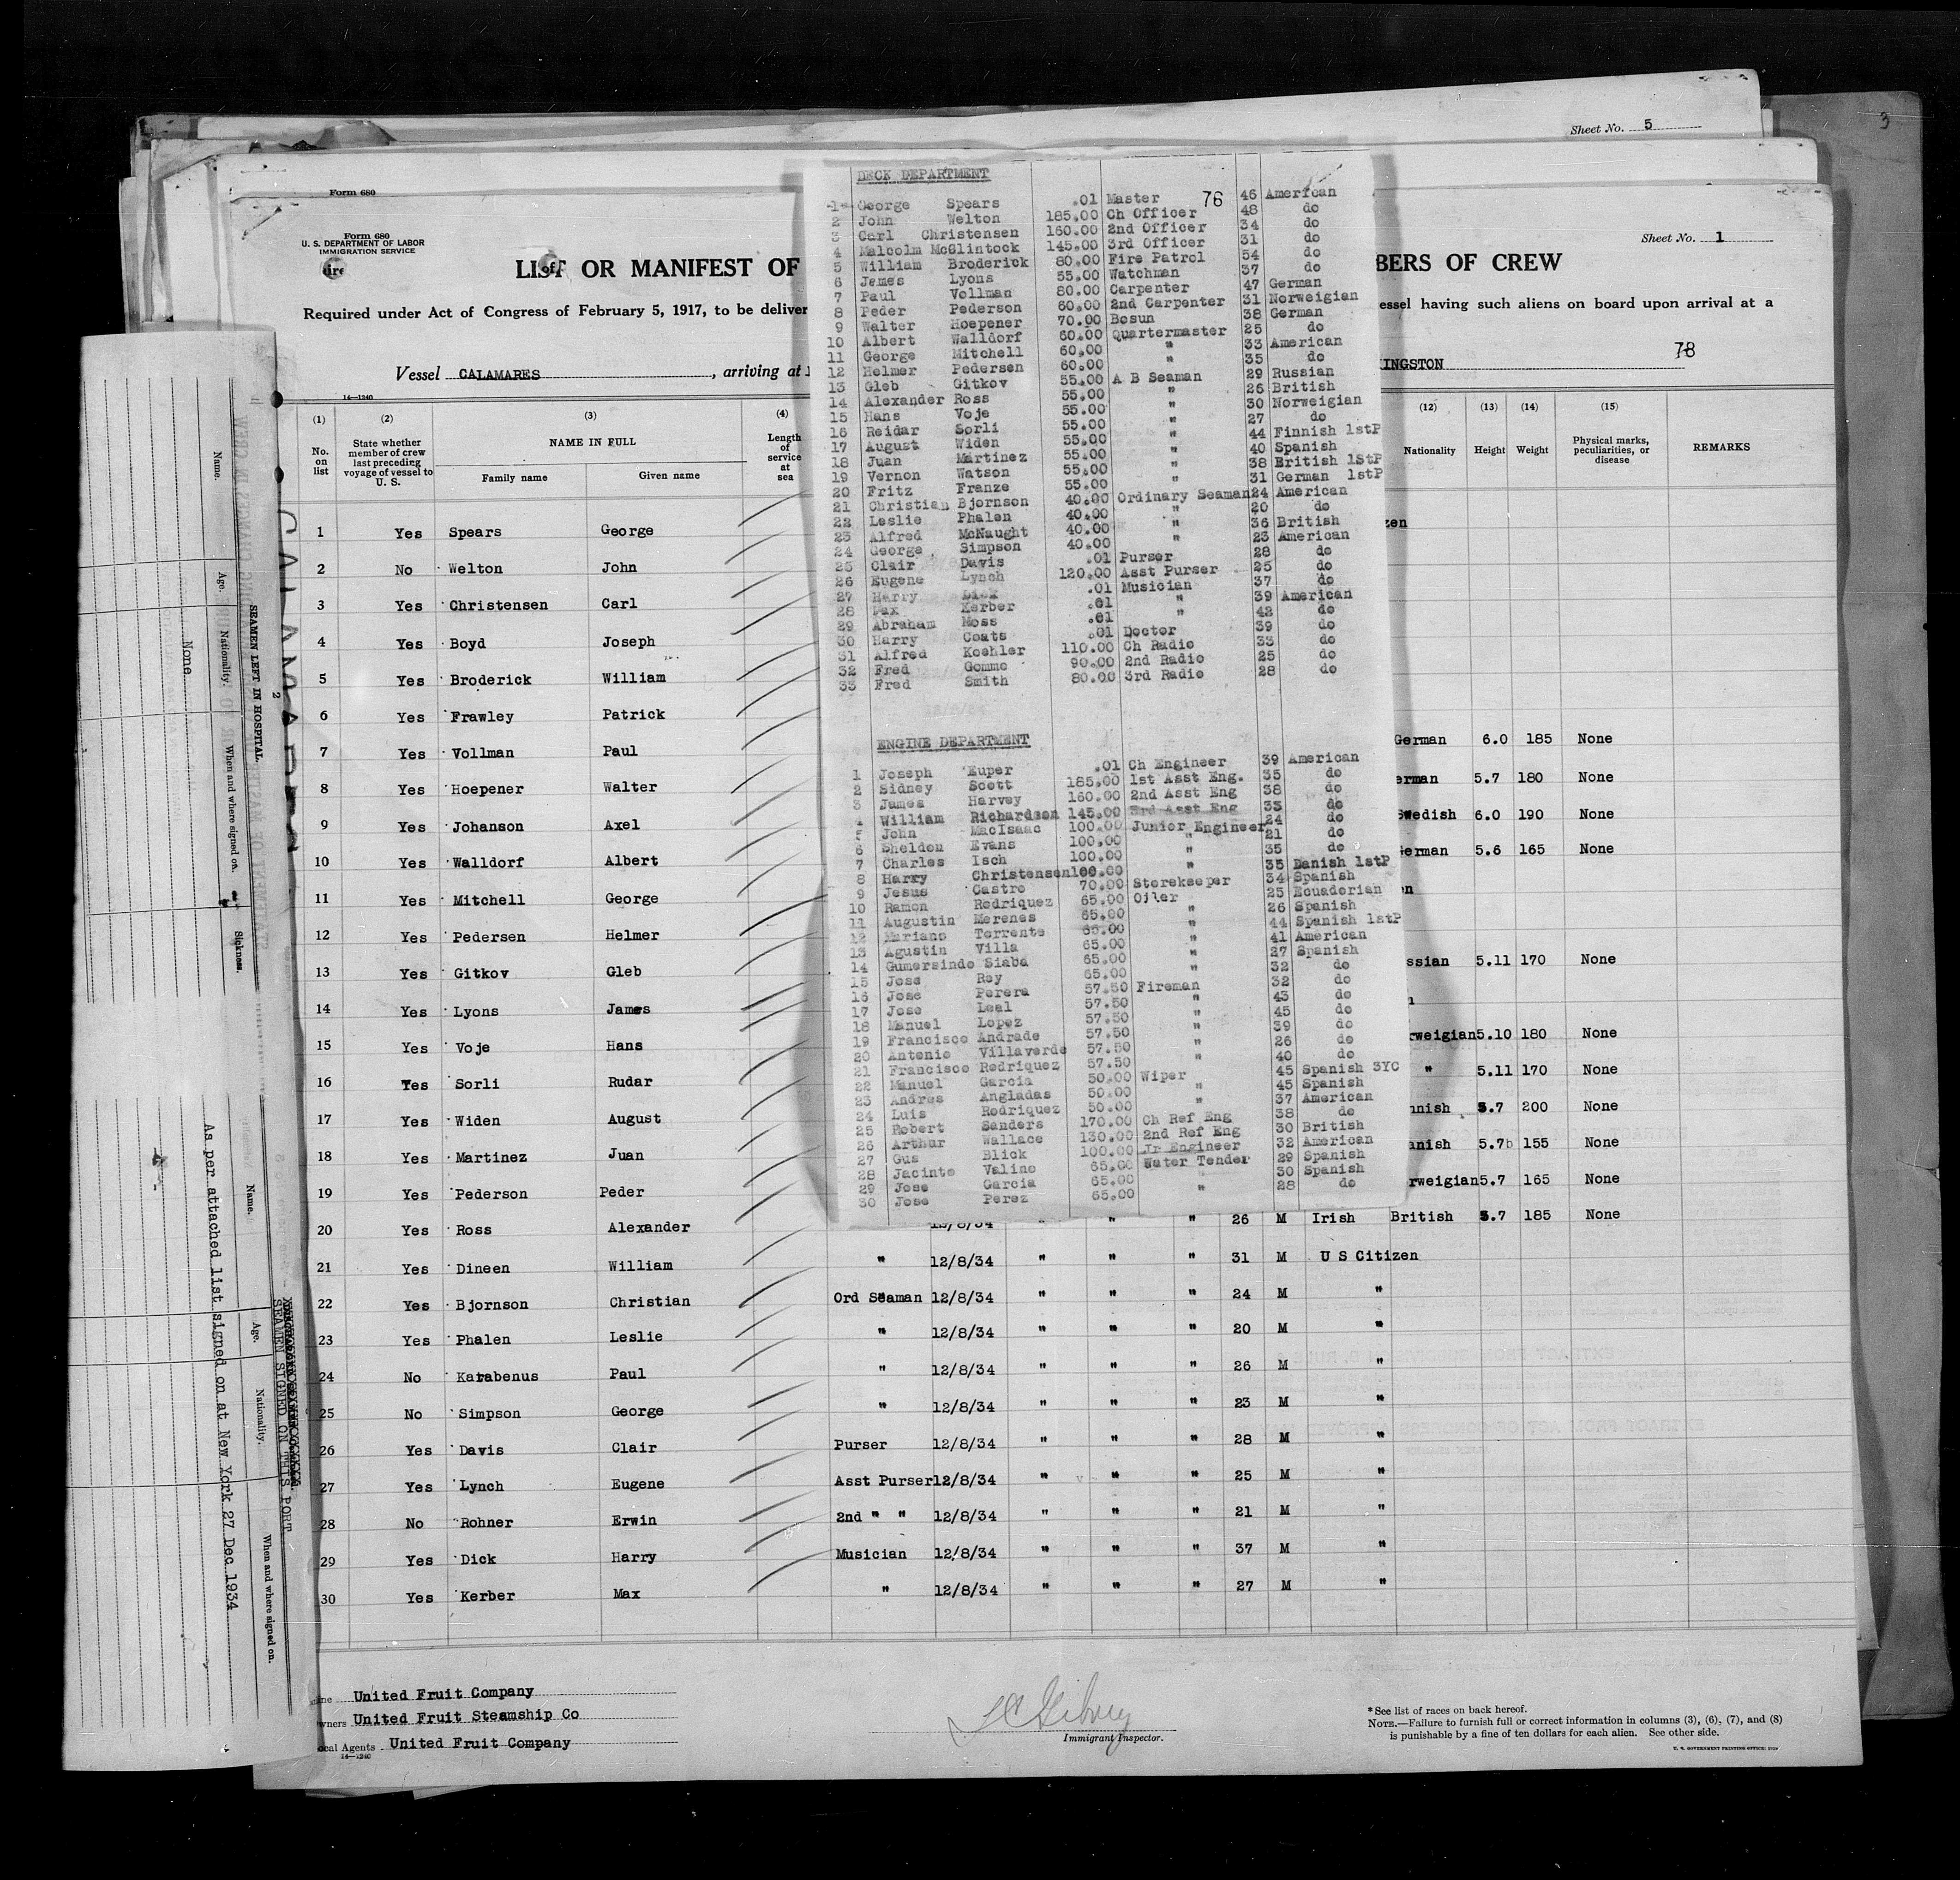 Sheet No. 5
3
Form 680
Form 680
U. S. DEPARTMENT OF LABOR
IMMIGRATION SERVICE
Sheet No. 1
LIST OR MANIFEST OF
BERS OF CREW
Required under Act of Congress of February 5, 1917, to be deliver
essel having such aliens on board upon arrival at a
78
Vessel CALAMARES, arriving at
KINGSTON
14—1240
DECK DEPARTMENT
76
1 George Spears .01 Master 46 American
2 John Welton 185.00 Ch Officer 48 do
3 Carl Christensen 160.00 2nd Officer 34 do
4 Malcolm McGlintock 145.00 3rd Officer 31 do
5 William Broderick 80.00 Fire Patrol 54 do
6 James Lyons 55.00 Watchman 37 do
7 Paul Vollman 80.00 Carpenter 47 German
8 Peder Pederson 60.00 2nd Carpenter 31 Norweigian
9 Walter Hoepener 70.00 Bosun 38 German
10 Albert Walldorf 60.00 Quartermaster 25 do
11 George Mitchell 60.00 " 33 American
12 Helmer Pedersen 60.00 " 35 do
13 Gleb Gitkov 55.00 A B Seaman 29 Russian
14 Alexander Ross 55.00 " 26 British
15 Hans Voje 55.00 " 30 Norweigian
16 Reidar Sorli 55.00 " 27 do
17 August Widen 55.00 " 44 Finnish 1stP
18 Juan Martinez 55.00 " 40 Spanish
19 Vernon Watson 55.00 " 38 British 1StP
20 Fritz Franze 55.00 " 31 German 1stP
21 Christian Bjornson 40.00 Ordinary Seaman 24 American
22 Leslie Phalen 40.00 " 20 do
23 Alfred McNaught 40.00 " 36 British
24 George Simpson 40.00 " 23 American
25 Clair Davis .01 Purser 28 do
26 Eugene Lynch 120.00 Asst Purser 25 do
27 Harry Dick .01 Musician 37 do
28 Max Kerber .01 " 39 American
29 Abraham Moss .01 " 42 do
30 Harry Coats .01 Doctor 39 do
31 Alfred Koehler 110.00 Ch Radio 33 do
32 Fred Gomme 90.00 2nd Radio 25 do
33 Fred Smith 80.00 3rd Radio 28 do
ENGINE DEPARTMENT
1 Joseph Euper .01 Ch Engineer 39 American
2 Sidney Scott 185.00 1st Asst Eng. 35 do
3 James Harvey 160.00 2nd Asst Eng 38 do
4 William Richardson 145.00 3rd Asst Eng 35 do
5 John MacIsaac 100.00 Junior Engineer 24 do
6 Sheldon Evans 100.00 " 21 do
7 Charles Isch 100.00 " 35 do
8 Harry Christensen 100.00 " 35 Danish 1stP
9 Jesus Castro 70.00 Storekeeper 34 Spanish
10 Ramon Rodriquez 65.00 Oiler 25 Ecuadorian
11 Augustin Merenes 65.00 " 26 Spanish
12 Mariano Torrente 65.00 " 44 Spanish 1stP
13 Agustin Villa 65.00 " 41 American
14 Gumersindo Siaba 65.00 " 27 Spanish
15 Jose Rey 65.00 " 32 do
16 Jose Perera 57.50 Fireman 32 do
17 Jose Leal 57.50 " 43 do
18 Manuel Lopez 57.50 " 45 do
19 Francisco Andrade 57.50 " 39 do
20 Antonio Villaverde 57.50 " 26 do
21 Francisco Rodriquez 57.50 " 40 do
22 Manuel Garcia 50.00 Wiper 45 Spanish 3YC
23 Andres Angladas 50.00 " 45 Spanish
24 Luis Rodriquez 50.00 " 37 American
25 Robert Sanders 170.00 Ch Ref Eng 38 do
26 Arthur Wallace 130.00 2nd Ref Eng 30 British
27 Gus Blick 100.00 Jr Engineer 32 American
28 Jacinto Valino 65.00 Water Tender 29 Spanish
29 Jose Garcia 65.00 " 30 Spanish
30 Jose Perez 65.00 " 28 do
(1) (2) (3) (4) (12) (13) (14) (15)
No. on list
State whether member of crew last preceding voyage of vessel to U. S.
NAME IN FULL
Family name Given name
Length of service at sea
Nationality Height Weight
Physical marks, peculiarities, or disease
REMARKS
1 Yes Spears George zen
2 No Welton John
3 Yes Christensen Carl
4 Yes Boyd Joseph
5 Yes Broderick William
6 Yes Frawley Patrick
7 Yes Vollman Paul German 6.0 185 None
8 Yes Hoepener Walter erman 5.7 180 None
9 Yes Johanson Axel Swedish 6.0 190 None
10 Yes Walldorf Albert German 5.6 165 None
11 Yes Mitchell George en
12 Yes Pedersen Helmer
13 Yes Gitkov Gleb ssian 5.11 170 None
14 Yes Lyons James n
15 Yes Voje Hans rweigian 5.10 180 None
16 Yes Sorli Rudar " 5.11 170 None
17 Yes Widen August nnish 5.7 200 None
18 Yes Martinez Juan anish 5.7b 155 None
19 Yes Pederson Peder rweigian 5.7 165 None
20 Yes Ross Alexander 12/8/34 " " " 26 M Irish British 5.7 185 None
21 Yes Dineen William " 12/8/34 " " " 31 M U S Citizen
22 Yes Bjornson Christian Ord Seaman 12/8/34 " " " 24 M "
23 Yes Phalen Leslie " 12/8/34 " " " 20 M "
24 No Karabenus Paul " 12/8/34 " " " 26 M "
25 No Simpson George " 12/8/34 " " " 23 M "
26 Yes Davis Clair Purser 12/8/34 " " " 28 M "
27 Yes Lynch Eugene Asst Purser 12/8/34 " " " 25 M "
28 No Rohner Erwin 2nd " " 12/8/34 " " " 21 M "
29 Yes Dick Harry Musician 12/8/34 " " " 37 M "
30 Yes Kerber Max " 12/8/34 " " " 27 M "
United Fruit Company
wners United Fruit Steamship Co
ocal Agents United Fruit Company
14—1240
Immigrant Inspector.
*See list of races on back hereof.
NOTE.—Failure to furnish full or correct information in columns (3), (6), (7), and (8)
is punishable by a fine of ten dollars for each alien. See other side.
U. S. GOVERNMENT PRINTING OFFICE:
SEAMEN LEFT IN HOSPITAL.
2
Name. Age. Nationality. When and where signed on. Sickness.
None
SEAMEN SIGNED ON THIS PORT
Name. Age. Nationality. When and where signed on.
As per attached list signed on at New York 27 Dec 1934